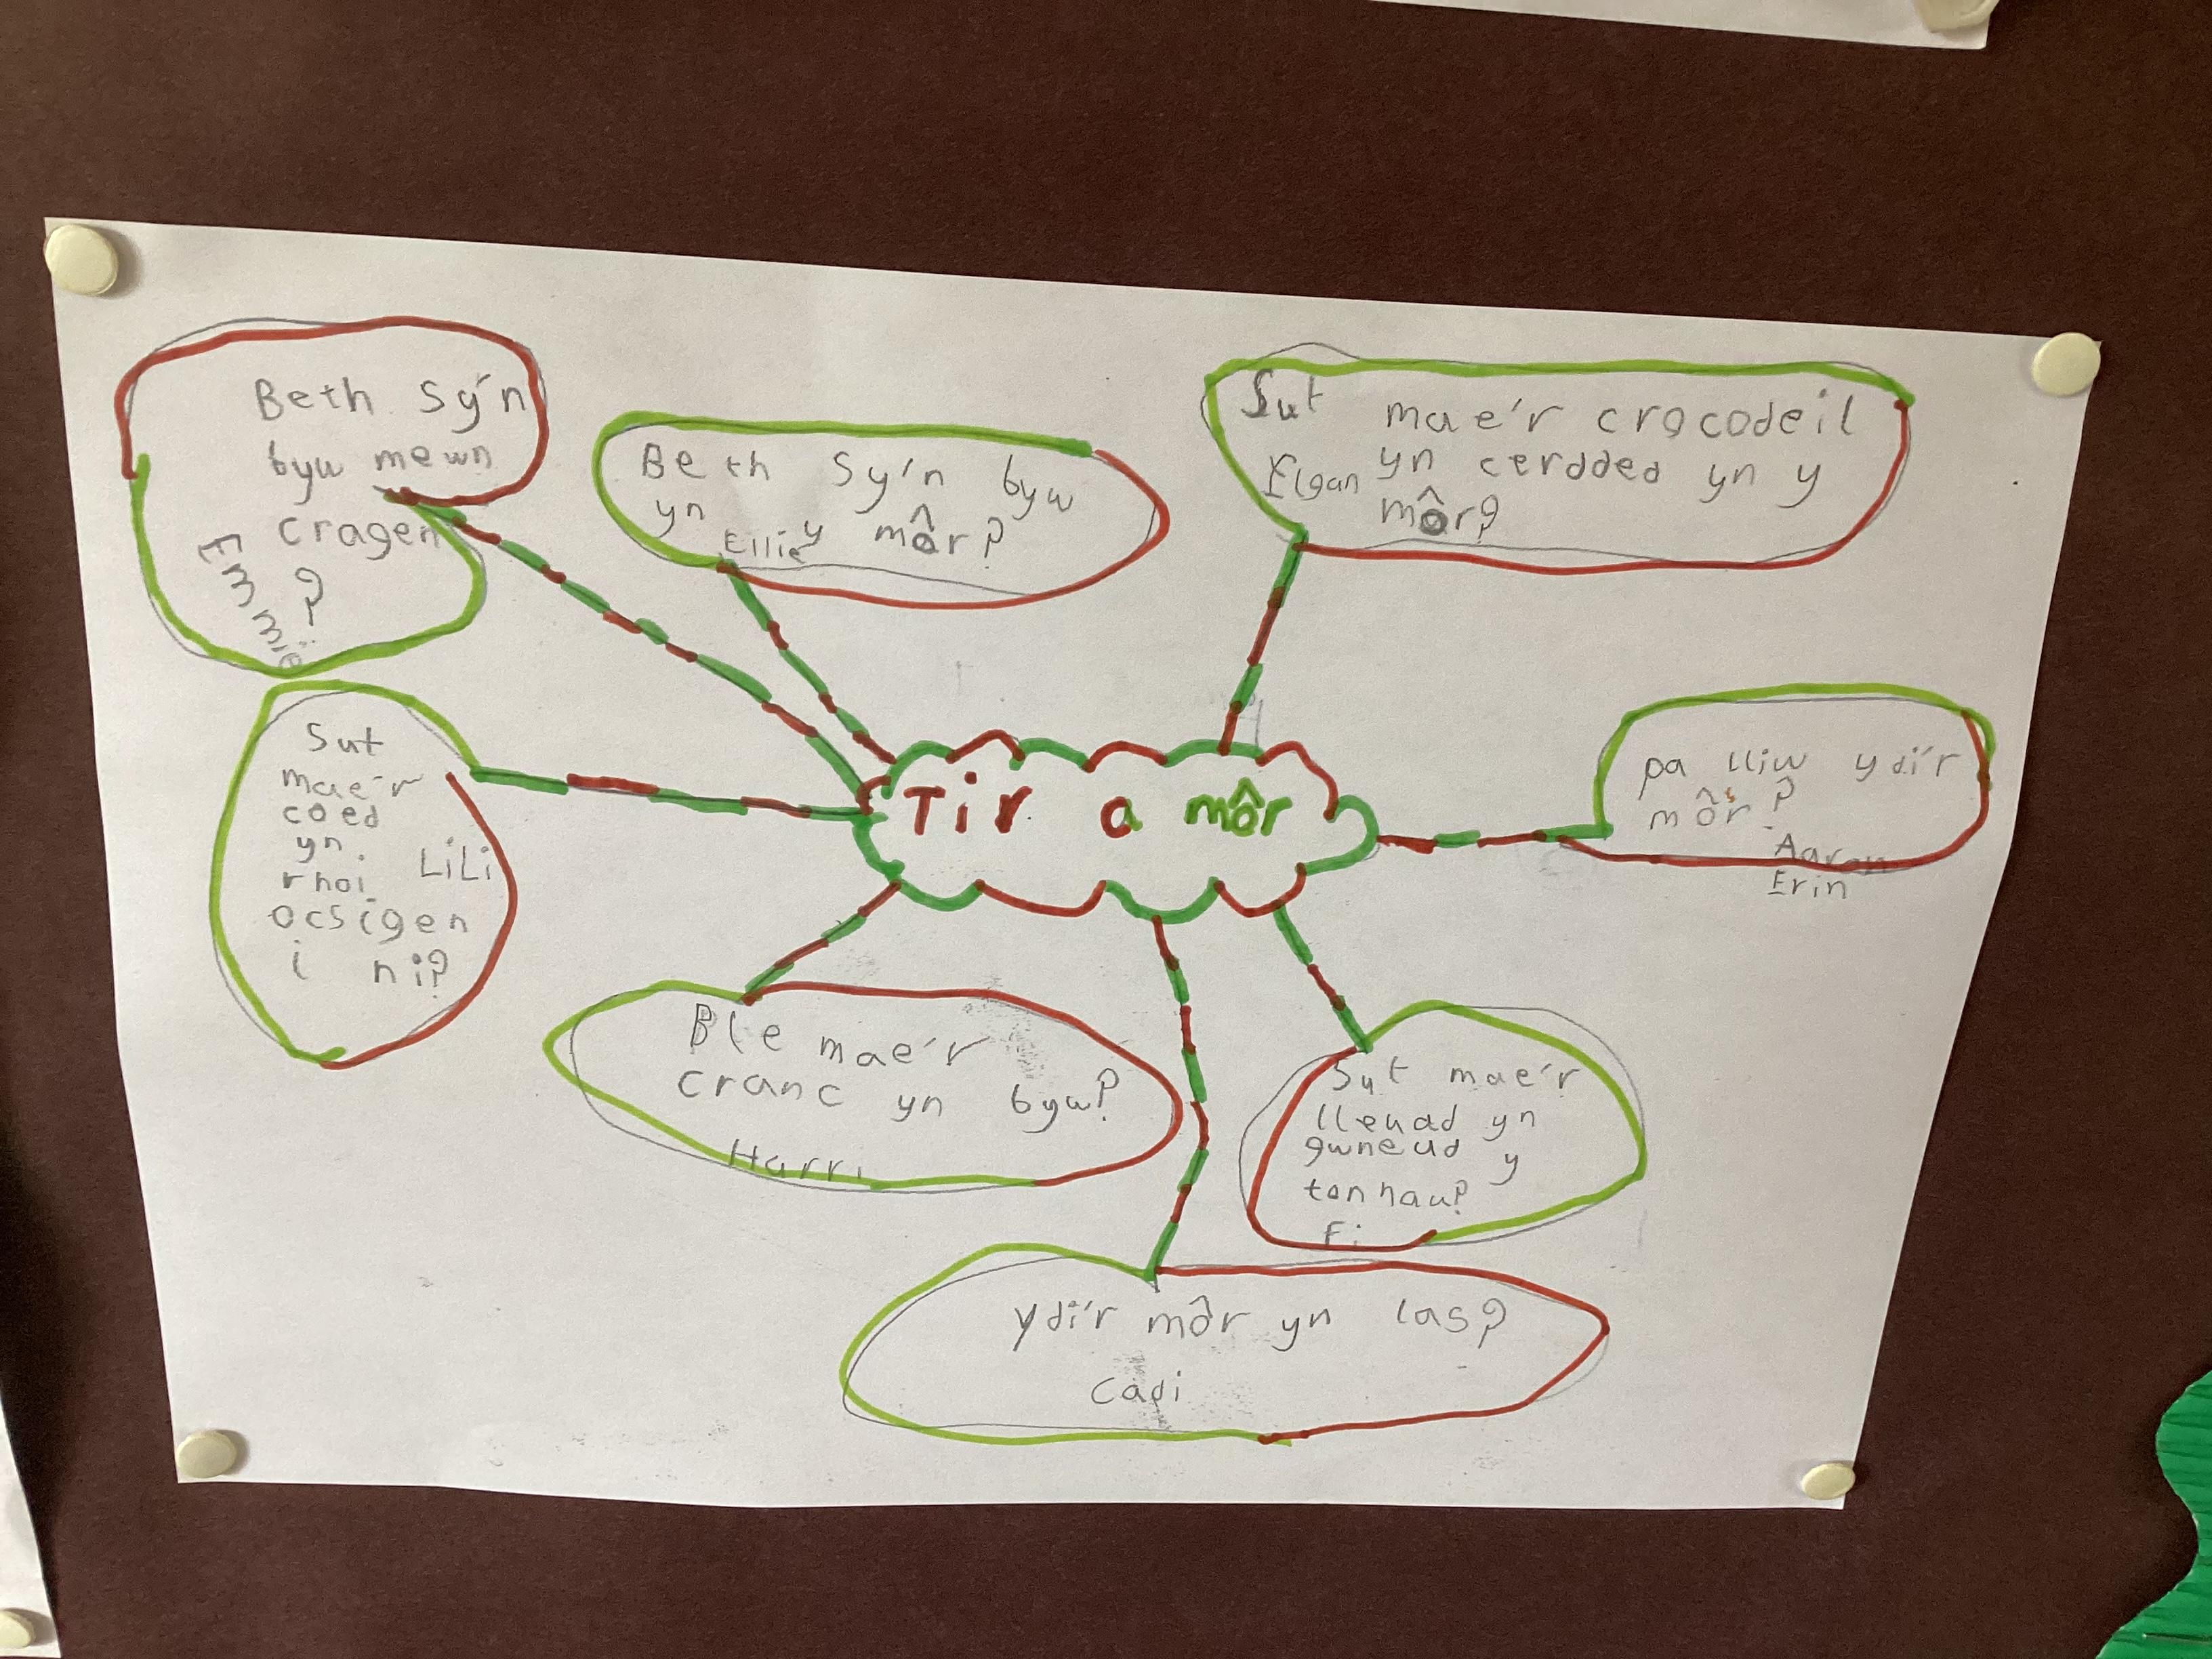 Beth sy'n
byw mewn
cragen
?
Emmie
Beth sy'n byw
yn y môr?
Ellie
Sut mae'r crocodeil
yn cerdded yn y
môr?
Elgan
Sut
mae'r
coed
yn
rhoi
ocsigen
i ni?
LiLi
Tir a môr
pa lliw ydi'r
môr?
Aaron
Erin
Ble mae'r
cranc yn byw?
Harri
Sut mae'r
lleuad yn
gwneud y
tonnau?
Fi
Ydi'r môr yn las?
Cadi